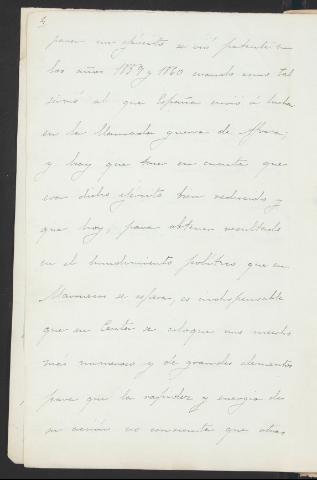 para un ejército se vió patente en
los años 1859 y 1860 cuando como tal
sirvió al que España envió á lucha
en la llamada guerra de Africa;
y hay que tener en cuenta que
era dicho ejército bien reducido y
que hoy, para obtener resultado
en el hundimiento político que en
Marruecos se espera, es indispensable
que en Ceuta se coloque uno mucho
más numeroso y de grandes elementos
para que la rapidez y energia de
su acción no consienta que otras